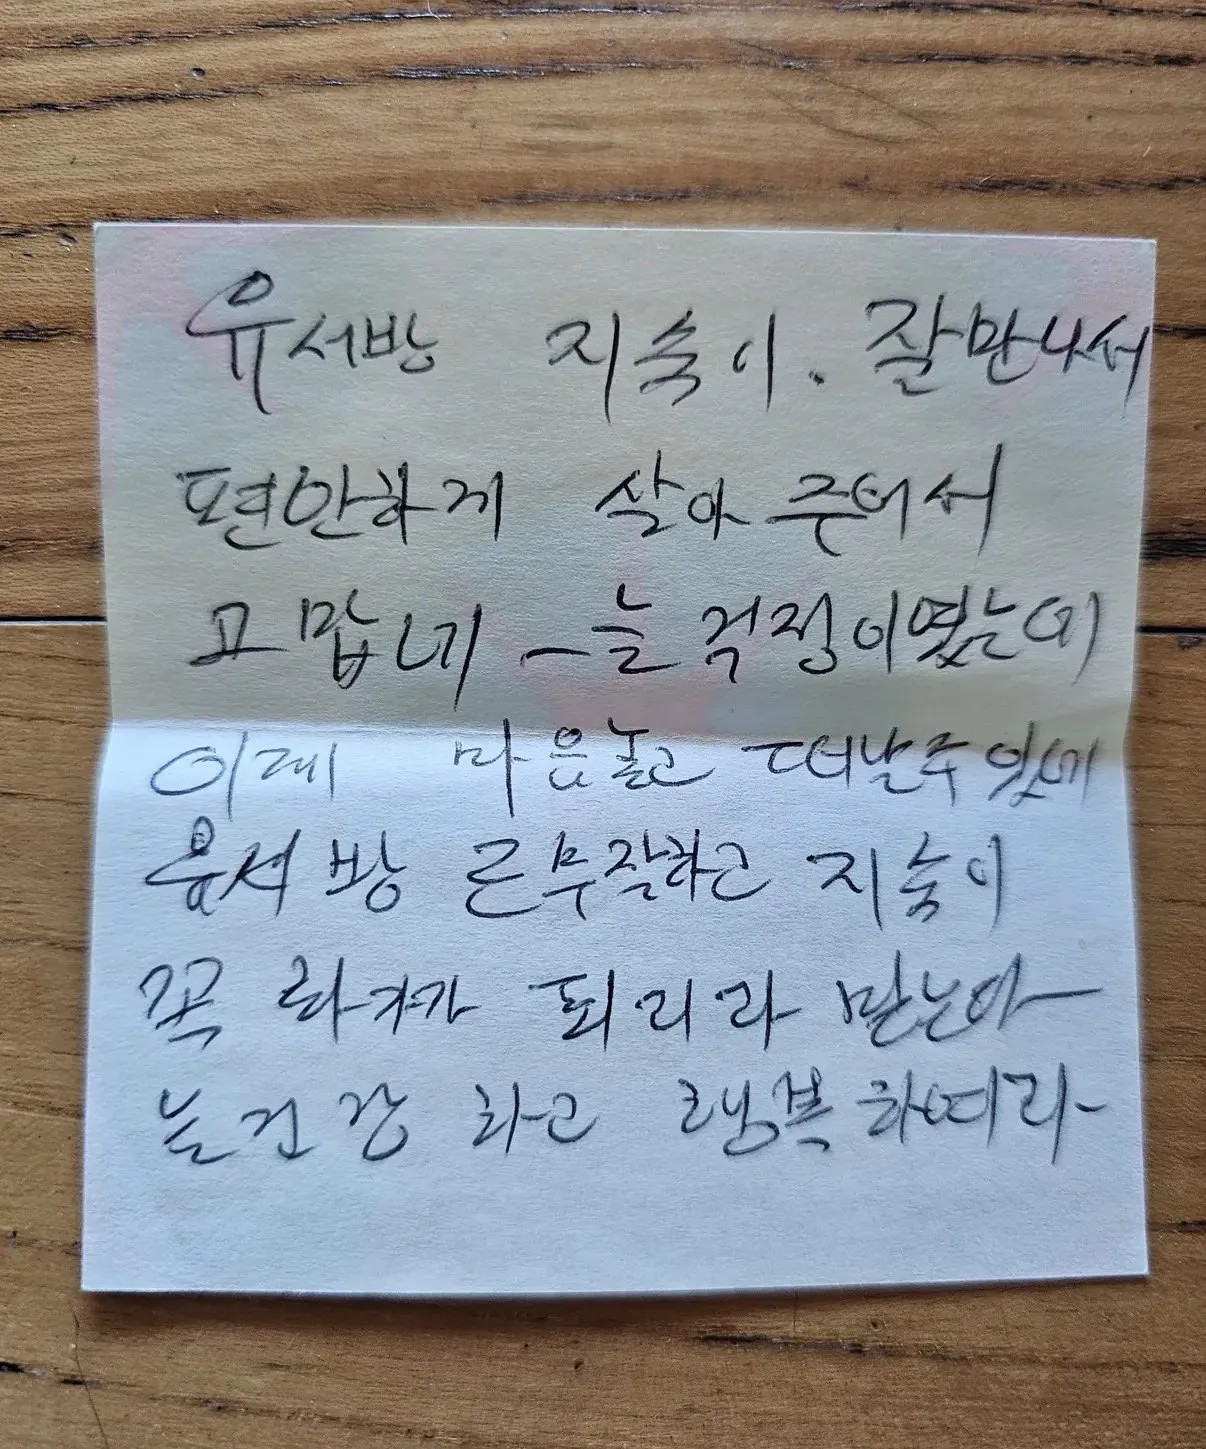 유서방 지숙이. 잘만나서
편안하게 살아 주어서
고맙네 늘 걱정이였는데
이제 마음놓고 떠날수있네
유서방 큰부자하고 지숙이
꼭 화가가 되리라 믿는다
늘건강 하고 행복하여라